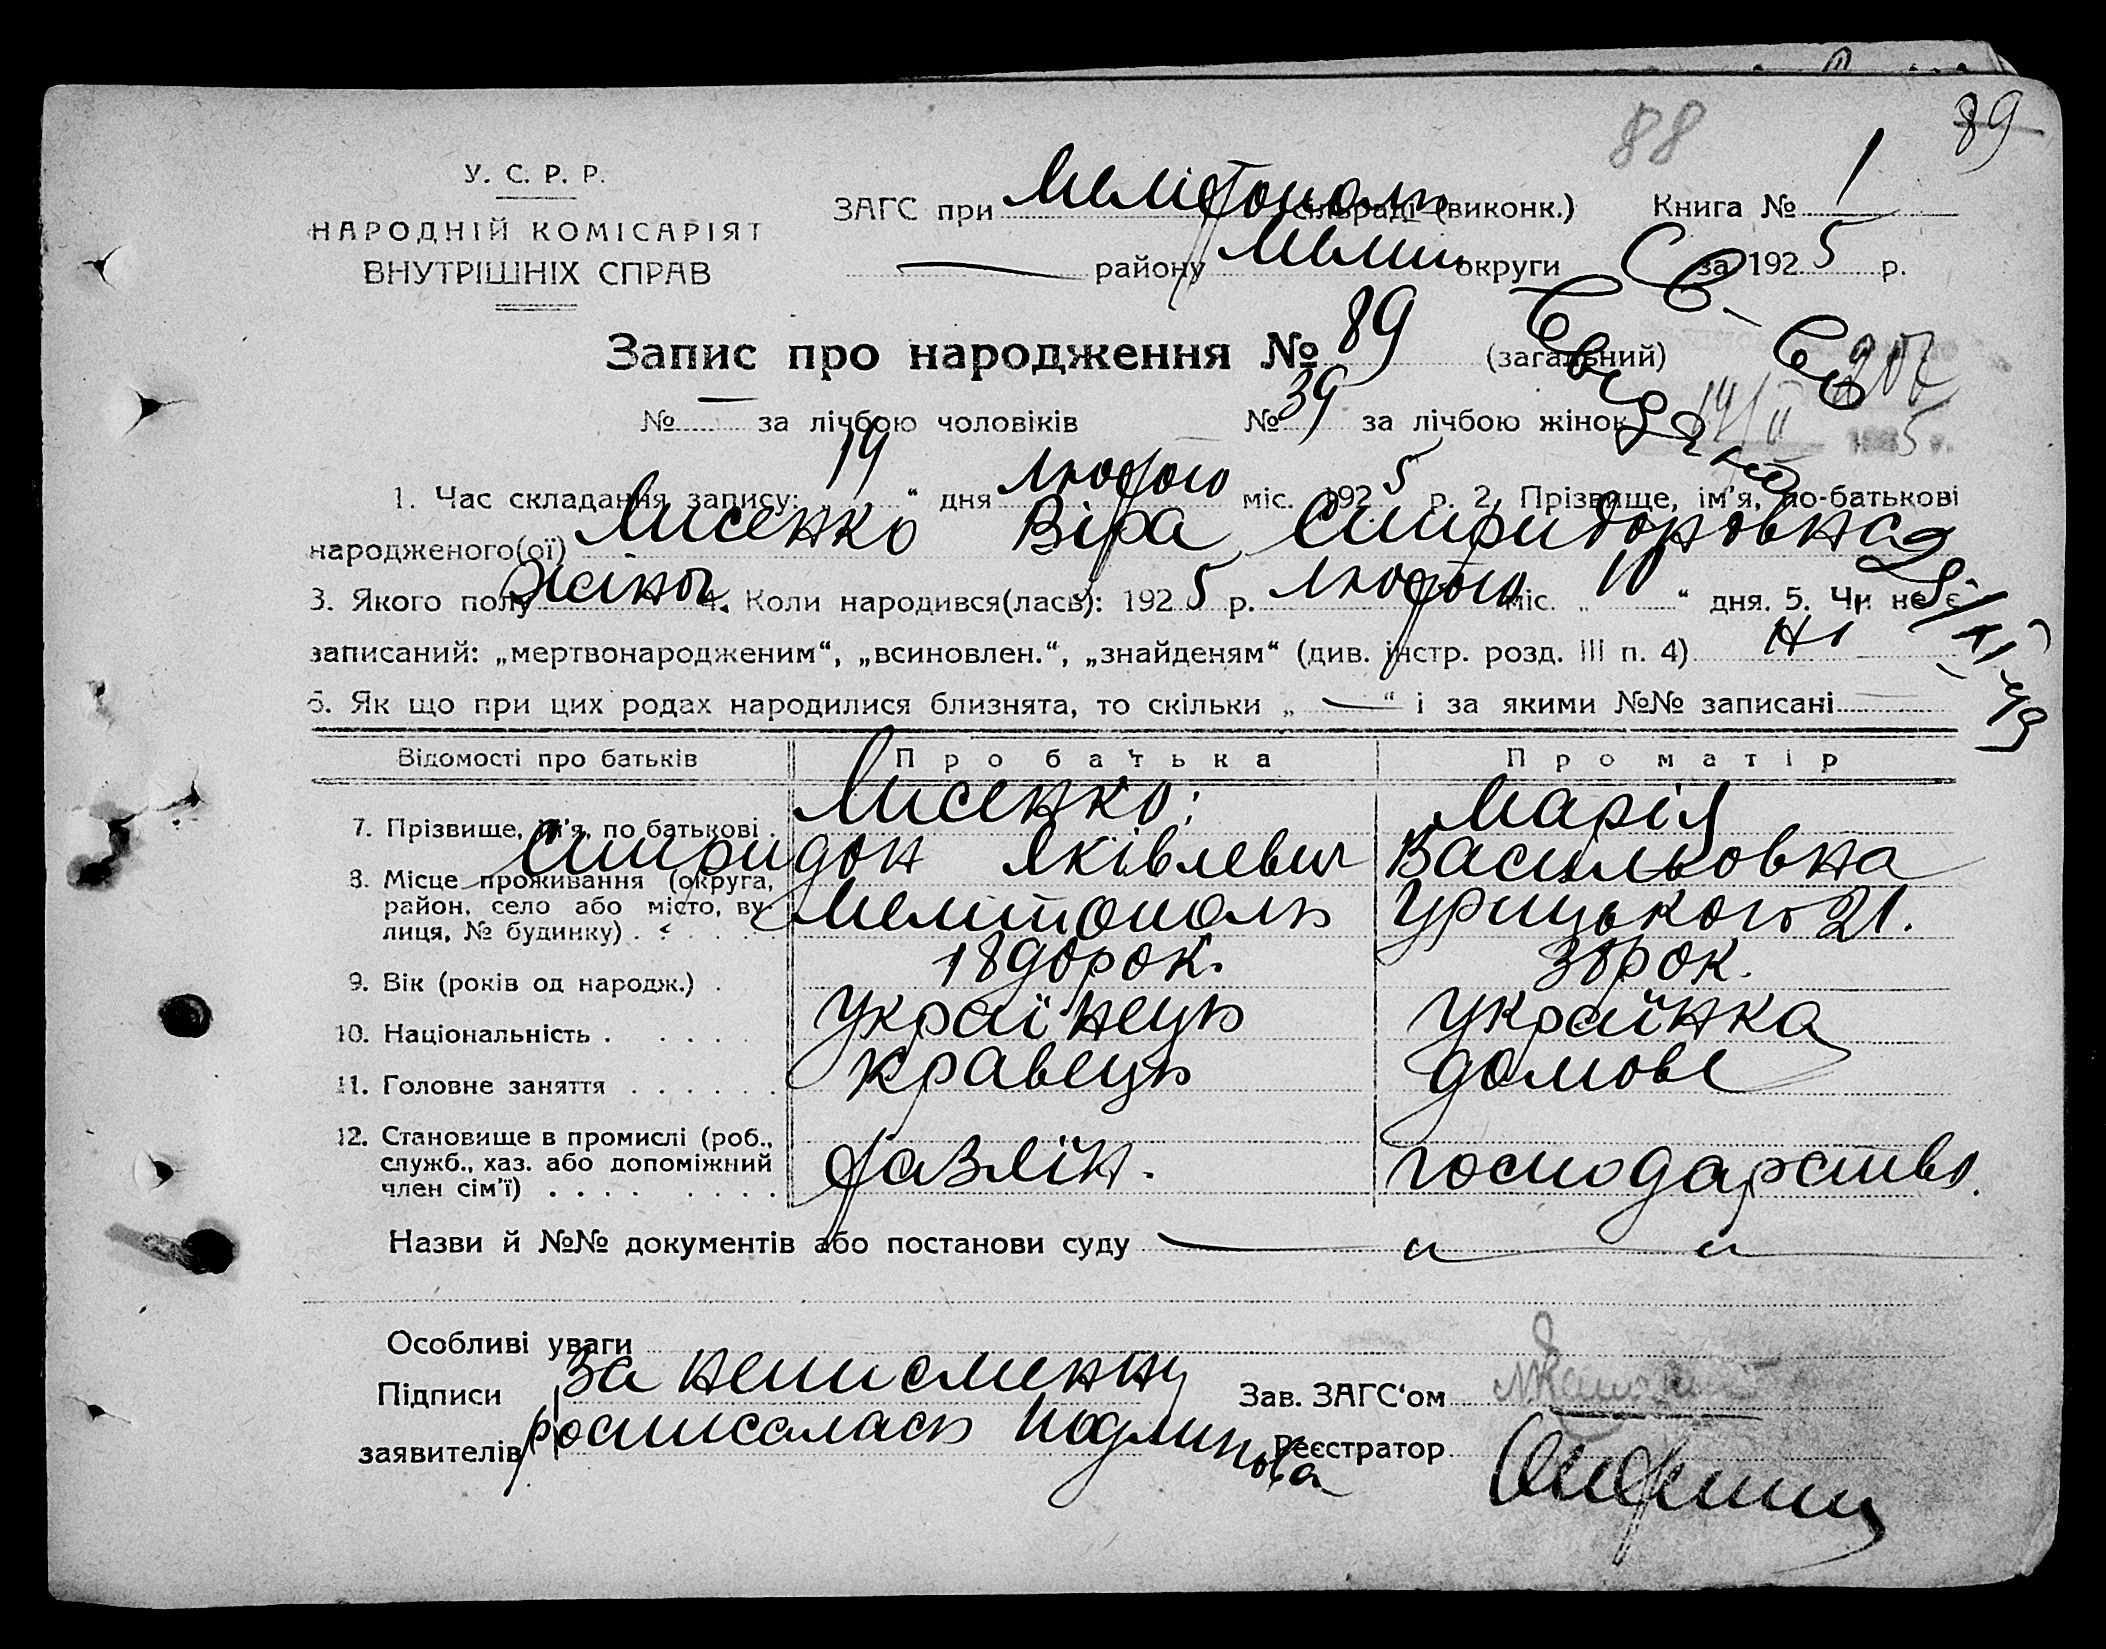 88 89
У. С. Р. Р.
НАРОДНІЙ КОМІСАРІЯТ
ВНУТРІШНІХ СПРАВ
ЗАГС при Мелітополь сільраді (виконк.) Книга № 1
— району Меліт округи за 1925 р.
Запис про народження № 89 (загальний)
№ — за лічбою чоловіків № 39 за лічбою жінок
14/II 1925 р.
1. Час складання запису: 14 “ дня лютого міс. 1925 р. 2. Прізвище, ім’я, по-батькові
народженого(ої) Лисенко Віра Спиридоновна
3. Якого полу жіноч. 4. Коли народився(лась): 1925 р. лютого міс. „ 10 “ дня. 5. Чи не є
записаний: „мертвонародженим“, „всиновлен.“, „знайденям“ (див. інстр. розд. III п. 4) ні
6. Як що при цих родах народилися близнята, то скільки „ — “ і за якими №№ записані
Відомості про батьків Про батька Про матір
7. Прізвище, ім’я, по батькові . Лисенко Спиридон Яківлевич Марія Васильковна
8. Місце проживання (округа, район, село або місто, вулиця, № будинку) . Мелітополь Урицького 21.
9. Вік (років од народж.) . рок. 38 рок.
10. Національність . українець українка
11. Головне заняття . кравець домове
12. Становище в промислі (роб., служб., хаз. або допоміжний член сім’ї) . господарство.
Назви й №№ документів або постанови суду — „ — „ —
Особливі уваги
Підписи За неписменну Зав. ЗАГС‘ом
заявителів росписалась Реєстратор